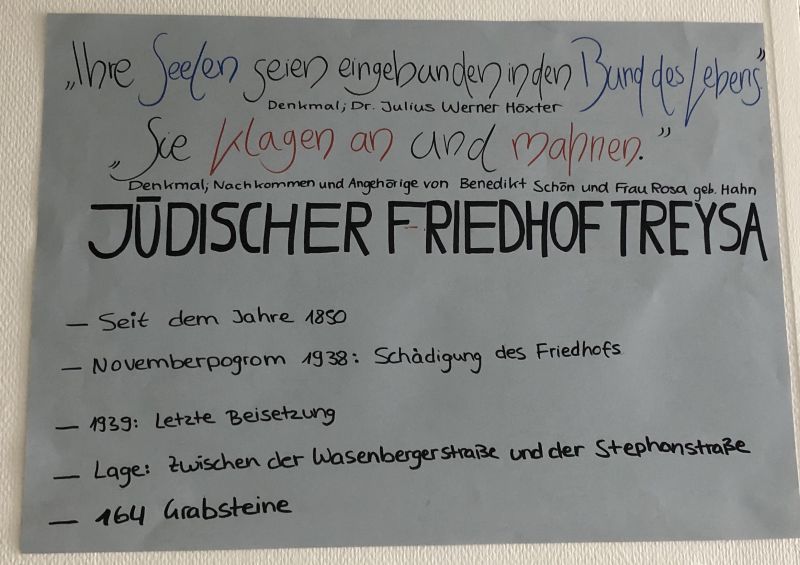 „Ihre Seelen seien eingebunden in den Bund des Lebens."
Denkmal; Dr. Julius Werner Höxter
„Sie klagen an und mahnen."
Denkmal; Nachkommen und Angehörige von Benedikt Schön und Frau Rosa geb. Hahn
JÜDISCHER FRIEDHOF TREYSA
— Seit dem Jahre 1850
— Novemberpogrom 1938: Schädigung des Friedhofs
— 1939: Letzte Beisetzung
— Lage: Zwischen der Wasenbergerstraße und der Stephanstraße
— 164 Grabsteine